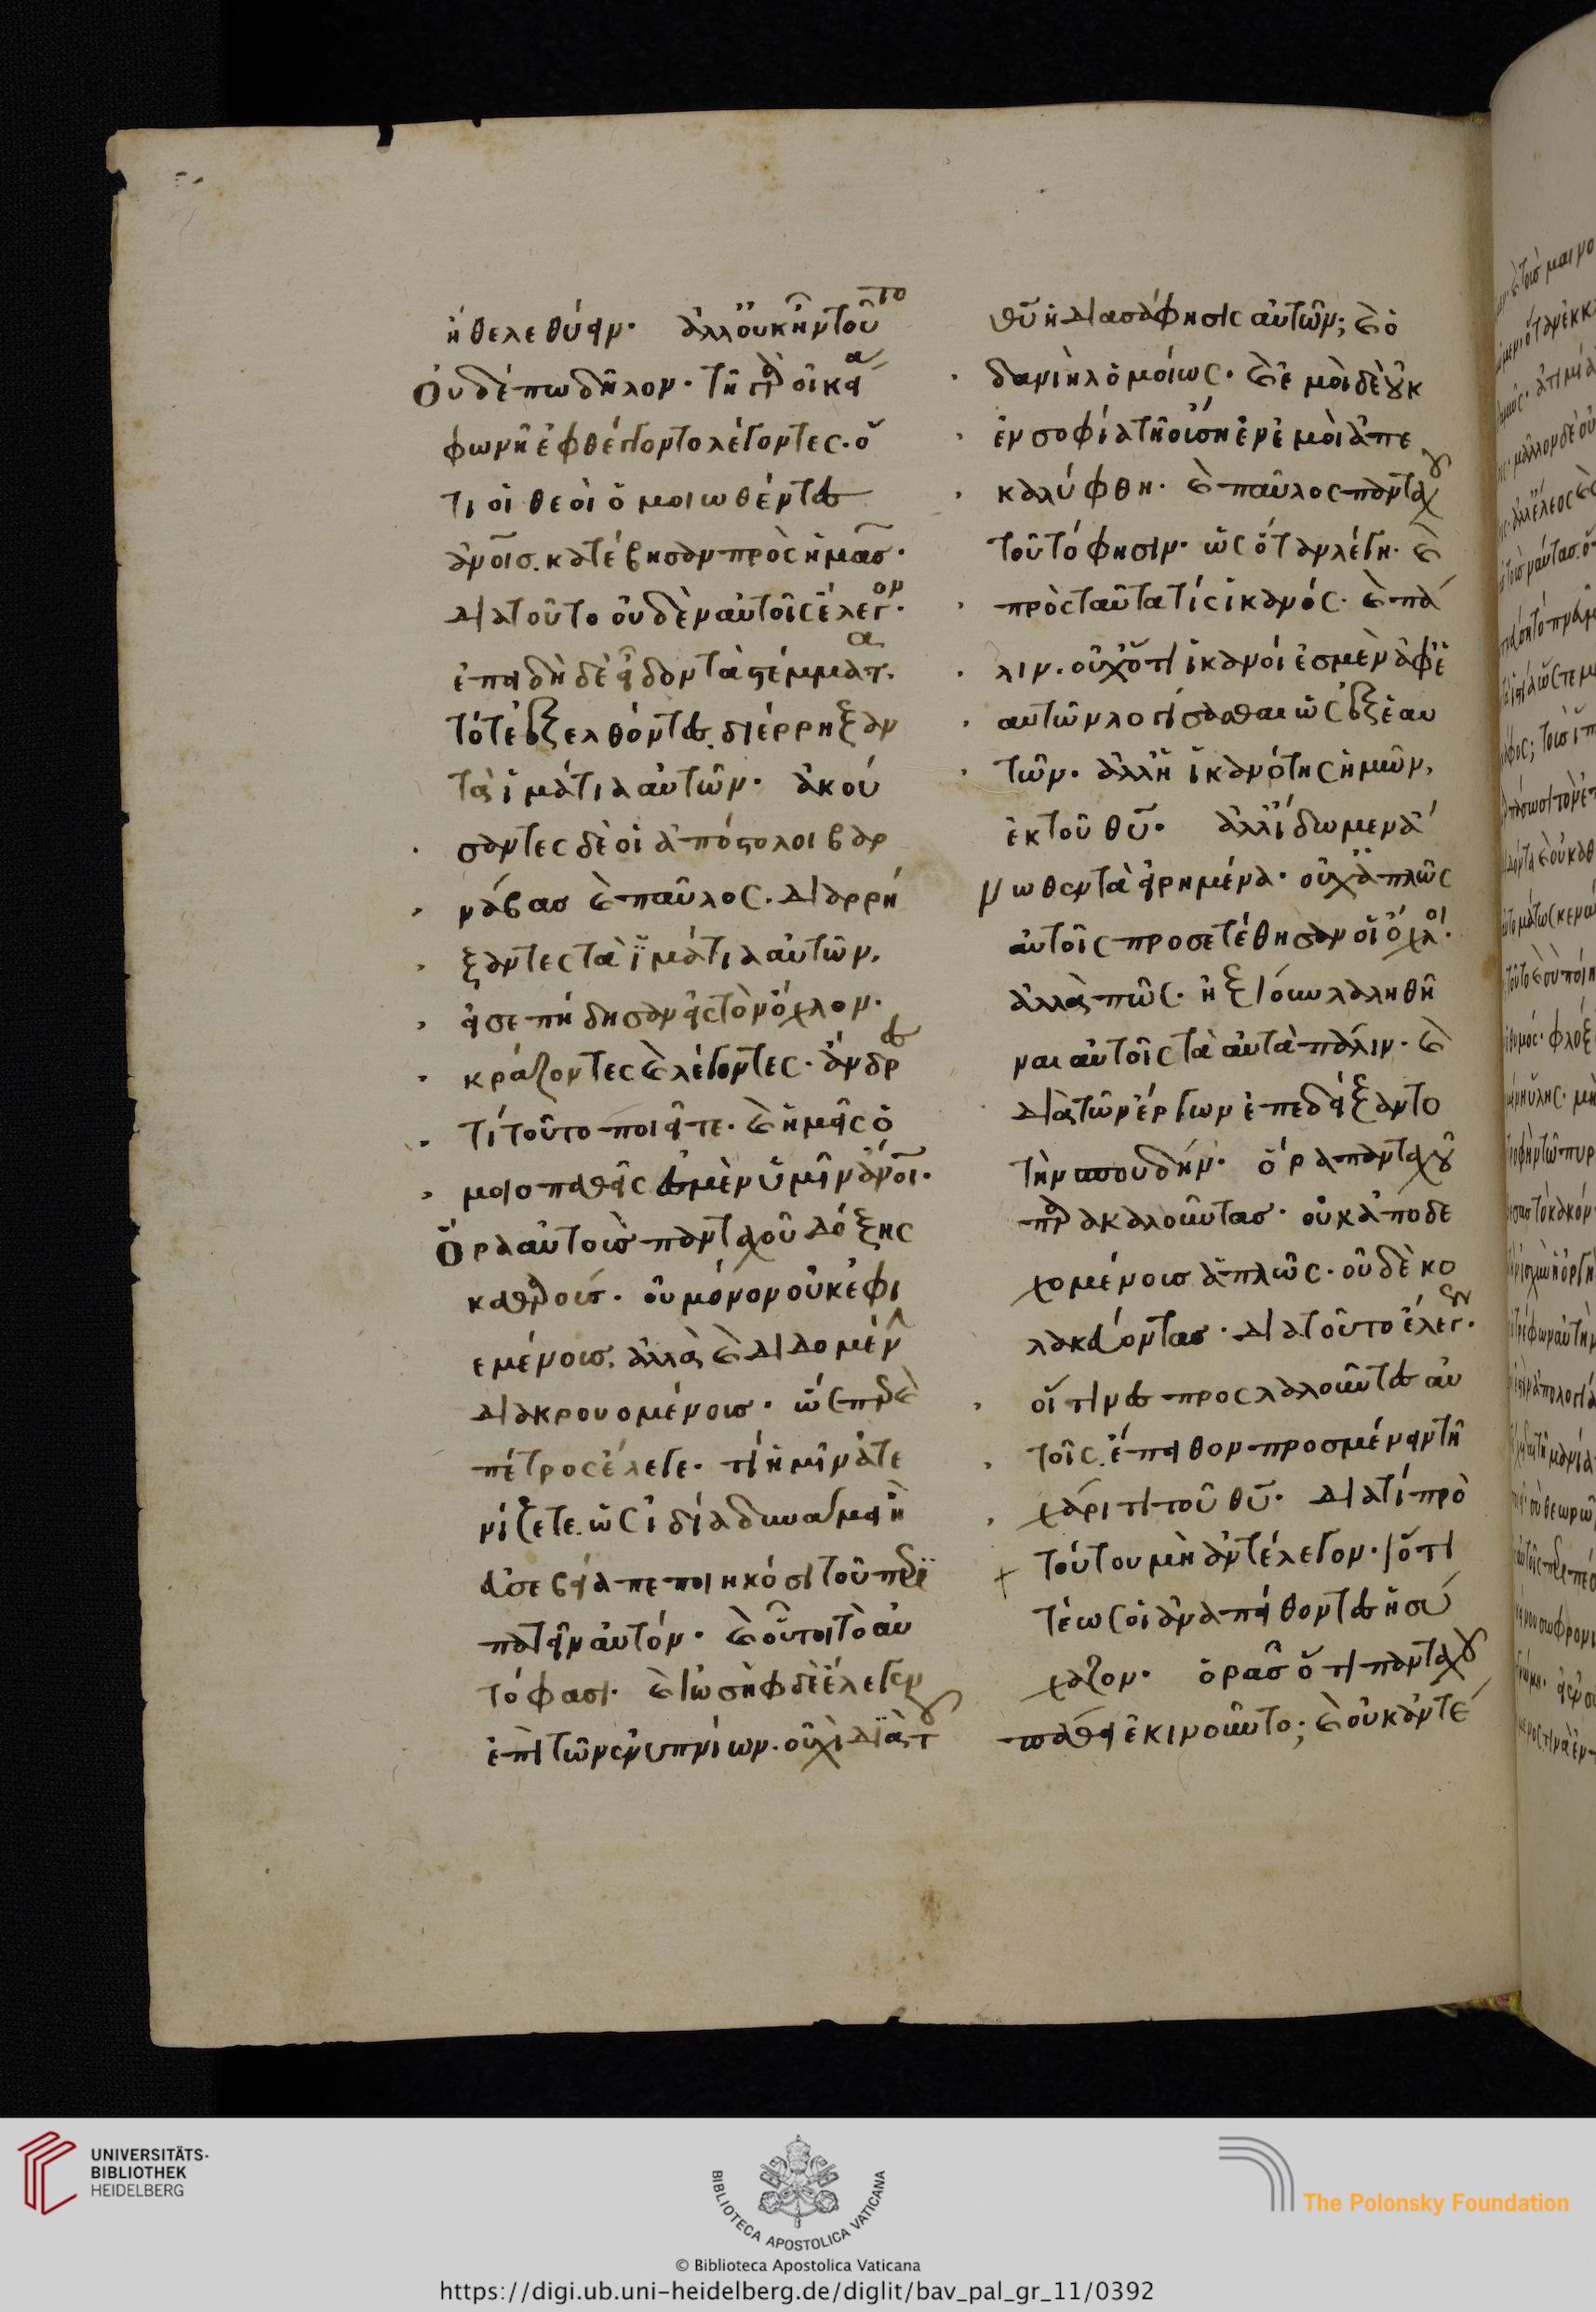 ἤθελε θύειν· ἀλλ' οὐκ ἦν τοῦτο
Οὐδέπω δῆλον· τῆ γὰρ οἰκεία
φωνῆ ἐφθέγγοντο λέγοντες· ὅ
τι οἱ θεοὶ ὁμοιωθέντες
ἀνοις. κατέβησαν πρὸς ἡμᾶς·
διατοῦτο οὐδὲν αὐτοῖς ἔλεγον·
ἐπειδὴ δὲ εἶδον τὰ στέμματα.
τότε ἐξελθόντες. διέρρηξαν
τὰ ἱμάτια αὐτῶν· ἀκού
σαντες δὲ οἱ ἀπόστολοι βαρ
νάβας καὶ παῦλος. διαρρή
ξαντες τὰ ἱμάτια αὐτῶν.
εἰσεπήδησαν εἰς τὸν ὄχλον·
κράζοντες καὶ λέγοντες· ἄνδρες
τί τοῦτο ποιεῖτε· καὶ ἡμεῖς ὁ
μοιοπαθεῖς ἐσμὲν ὑμῖν ἀνοι·
Ὅρα αὐτοὺς πανταχοῦ δόξης
καθαροὺς· οὐ μόνον οὐκ ἐφι
εμένους. ἀλλὰ καὶ διδομένην
διακρουομένους· ὥσπερ καὶ
πέτρος ἔλεγε· τί ἡμῖν ἀτε
νίζετε. ὡς ἰδία δυνάμει ἢ
εὐσεβεία πεποιηκόσι τοῦ περι
πατεῖν αὐτόν· καὶ οὗτοι τὸ αὐ
τό φασι· καὶ ἰωσὴφ δὲ ἔλεγεν
ἐπὶ τῶν ἐνυπνίων. οὐχὶ διὰ τοῦ
θυ ἡ διασάφησις αὐτῶν; καὶ ὁ
δανιὴλ ὁμοίως· καὶ ἐμοὶ δὲ οὐκ
ἐν σοφία τῆ οὔση ἐν ἐμοὶ ἀπε
καλύφθη· καὶ παῦλος πανταχοῦ
τοῦτό φησιν· ὡς ὅταν λέγη· καὶ
πρὸς ταῦτα τίς ἱκανός· καὶ πά
λιν. οὐχ ὅτι ἱκανοί ἐσμὲν ἀφ' ἑ
αυτῶν λογίσασθαι ὡς ἐξ ἑαυ
τῶν· ἀλλ' ἡ ἱκανότης ἡμῶν.
ἐκ τοῦ θυ· ἀλλ' ἴδωμεν ἄ
νωθεν τὰ εἰρημένα· οὐχ ἁπλῶς
αὐτοῖς προσετέθησαν οἱ ὄχλοι·
ἀλλὰ πῶς· ἠξίουν λαληθῆ
ναι αὐτοῖς τὰ αὐτὰ πάλιν· καὶ
διὰ τῶν ἔργων ἐπεδείξαντο
τὴν σπουδήν· ὅρα πανταχοῦ
παρακαλοῦντας· οὐκ ἀποδε
χομένους ἁπλῶς· οὐδὲ κο
λακεύοντας· διατοῦτο ἔλεγεν·
οἵτινες προσλαλοῦντες αὐ
τοῖς. ἔπειθον προσμένειν τῆ
χάριτι τοῦ θυ· διατί πρὸ
τούτου μὴ ἀντέλεγον· ὅτι
τέως οἱ ἀναπείθοντες ἡσύ
χαζον· ὁρᾶς ὅτι πανταχοῦ
πάθει ἐκινοῦντο; καὶ οὐκ ἀντέ
UNIVERSITÄTS-
BIBLIOTHEK
HEIDELBERG
BIBLIOTECA APOSTOLICA VATICANA
The Polonsky Foundation
© Biblioteca Apostolica Vaticana
https://digi.ub.uni-heidelberg.de/diglit/bav_pal_gr_11/0392